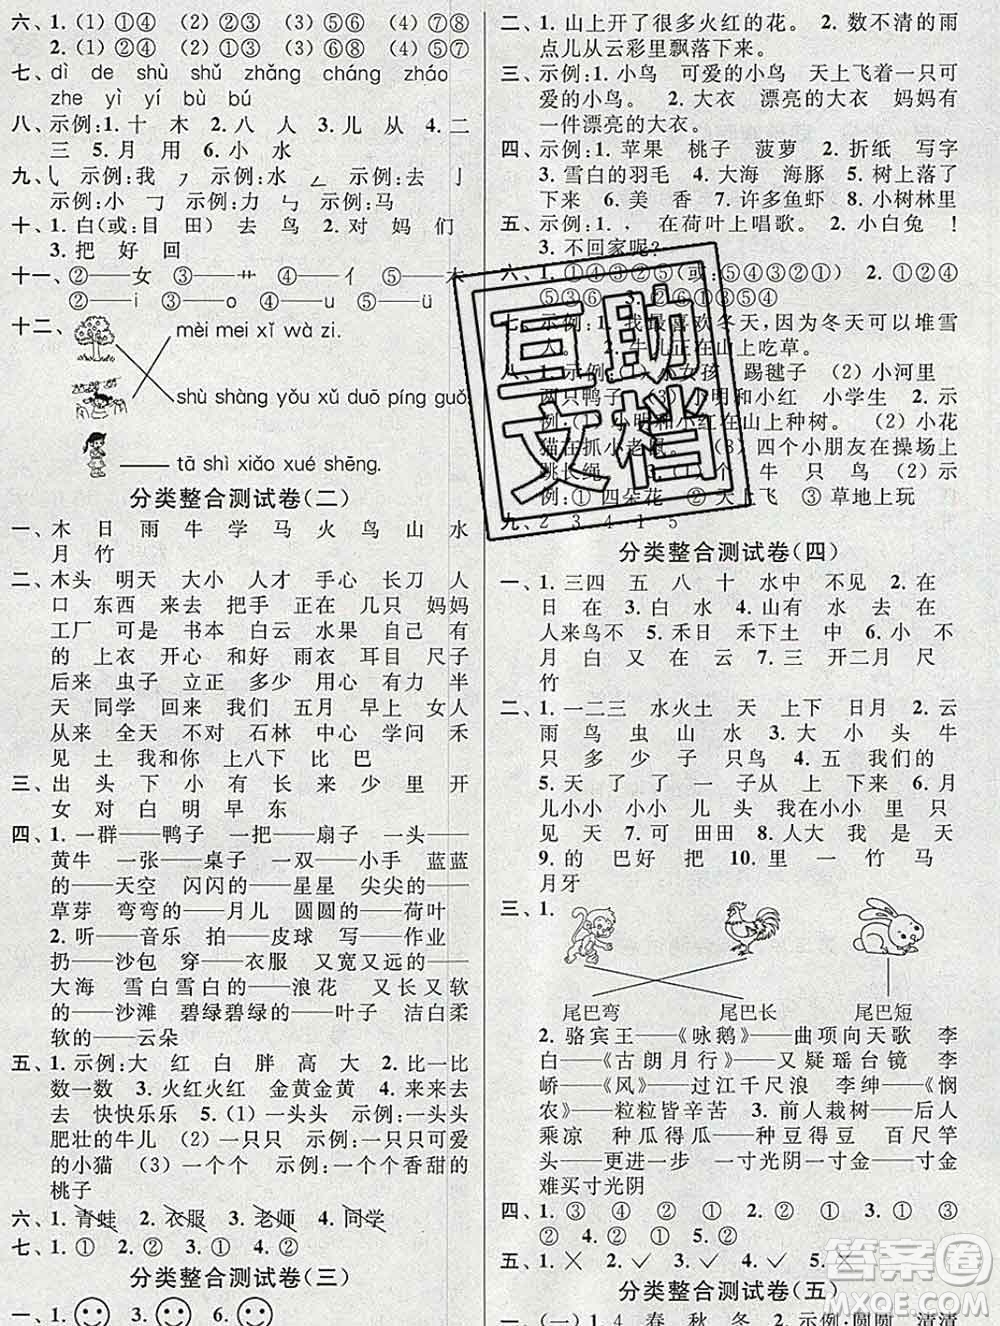 六、1.（1）①④ （2）②③ （3）⑤⑥ （4）⑦⑧
2.（1）②④ （2）①③ （3）⑥⑧ （4）⑤⑦
七、dì de shù shǔ zhǎng cháng zháo
zhe yì yí bù bú
八、示例:1. 十 木 2. 八 人 3. 儿 从 4. 二
三 5. 月 用 6. 小 水
九、㇂ 示例:我 ㇇ 示例:水 ㄥ 示例:去 亅
示例:小 示例:力 ㄣ 示例:马
十、1. 白(或:目 田) 去 2. 对 妈 们
3. 把 好 回
十一、②——女 ③——艹 ④——亻 ⑤——木
②——i ③——o ④——u ⑤——ü
十二、
mèi mei xǐ wà zi.
shù shàng yǒu xǔ duō píng guǒ.
tā shì xiǎo xué shēng.
分类整合测试卷(二)
一、木 日 雨 牛 学 马 火 鸟 山 水
月 竹
二、木头 明天 大小 人才 手心 长刀 人
口 东西 来去 里面 正在 几只 妈妈
工厂 可是 书本 白云 水果 自己 有
的 上衣 开心 和好 雨衣 耳目 尺子
后来 虫子 立正 多少 用心 有力 半
天 回来 我们 五月 早上 女人
从来 全天 不对 石林 中心 学问 禾
见 土 我和你 上八下 比 巴
三、出 头 下 小 有 长 来 少 里 开
女 对 白 明 早 东
四、1. 一群——鸭子 一把——扇子 一头——
黄牛 一张——桌子 一双——小手 蓝蓝
的——天空 闪闪的——星星 尖尖的——
草芽 弯弯的——月儿 圆圆的——荷叶
2. 听——音乐 拍——皮球 写——作业
扔——沙包 穿——衣服 又宽又远——
大海 雪白雪白的——浪花 又长又软
的——沙滩 碧绿碧绿的——叶子 洁白柔
软的——云朵
五、1. 示例:大 红 白 胖 高 大 2. 比一比
数一数 3. 火红火红 金黄金黄 4. 来来去
去 快快乐乐 5.（1）一头头 示例:一头头
肥壮的牛儿 （2）一只只 示例:一只只可爱
的小猫 （3）一个个 示例:一个个香甜的
桃子
六、1. 青蛙 2. 衣服 3. 老师 4. 同学
七、1. ① 2. ② 3. ① 4. ②
分类整合测试卷(三)
一、1. 3. 6.
二、1. 山上开了很多火红的花。 2. 数不清的雨
点儿从云彩里飘落下来。
三、示例:1. 小鸟 可爱的小鸟 天上飞着一只可
爱的小鸟。 2. 大衣 漂亮的大衣 妈妈有
有一件漂亮的大衣。
四、示例:1. 苹果 桃子 菠萝 2. 折纸 写字
3. 雪白的羽毛 4. 大海 海豚 5. 树上落了
下来 6. 美 香 7. 许多鱼虾 8. 小树林里
五、示例:1. , 在荷叶上唱歌。 2. 小白兔 !
3. 不回家呢?
六、1. ①④③②⑤(或:⑤④③②①) 2. ①②⑤
3. ②⑥①③⑤④
七、示例:1. 我最喜欢冬天,因为冬天可以堆雪
人。 2. 牛儿正在山上吃草。
女孩 踢毽子 （2）小河里
两只鸭子 小明和小红 小学生 2. 示
小明和小红在山上种树。 （2）小花
猫在抓小老鼠。 （3）四个小朋友在操场上
跳长绳 个 牛 只 鸟 （2）示
例:① 四朵花 ② 天上飞 ③ 草地上玩
九、2 3 4 1 5
分类整合测试卷(四)
一、1. 三四 五 八 十 水中 不见 2. 在
日 在 3. 白 水 4. 山有 水 去 在
人来鸟不 5. 禾日 禾下土 6. 小 不
月 白 又 在 云 7. 三 开二月 尺
竹
二、1. 一二三 水火土 天 上下 日月 2. 云
雨 鸟 虫 山 水 3. 大 小 头 牛
只 多 少 只鸟 4. 我们 天
5. 天 了 了 一 子 从 上 下来 6. 月
儿小小 小小 儿 头 我在小小 里 只
见 天 7. 可 田田 8. 人大 我 是 天
9. 的 巴好 把 10. 里 一 竹 马
月牙
三、1.
尾巴弯 尾巴长 尾巴短
2. 骆宾王——《咏鹅》——曲项向天歌 李
白——《古朗月行》——又疑瑶台镜 李
峤——《风》——过江千尺浪 李绅——《悯
农》——粒粒皆辛苦 3. 前人栽树——后人
乘凉 种瓜得瓜——种豆得豆 百尺竿
头——更进一步 一寸光阴一寸金——寸金
难买寸光阴
四、1. ③ ④ ② ① 2. ② ① ③ ④
② ① ③ ④
五、1. × 2. ✓ 3. ✓ 4. ✓ 5. ×
分类整合测试卷(五)
一、(一) 1. 4 春 秋 冬 2. 示例:圆圆 清清
互助文档
答案圈
MXQE.COM